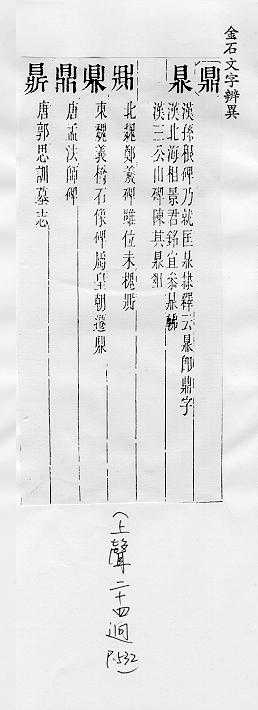 金石文字辨異
鼎
鼎
漢孫根碑乃就匡鼎隸釋云鼎即鼎字
漢北海相景君銘宜參鼎
漢三公山碑陳其鼎俎
鼎
北魏鄭羲碑雖位未槐鼎
鼎
東魏義橋石像碑屬皇朝遷鼎
鼎
唐孟法師碑
鼎
唐郭思訓墓志
(上聲二十四迥 P.532)